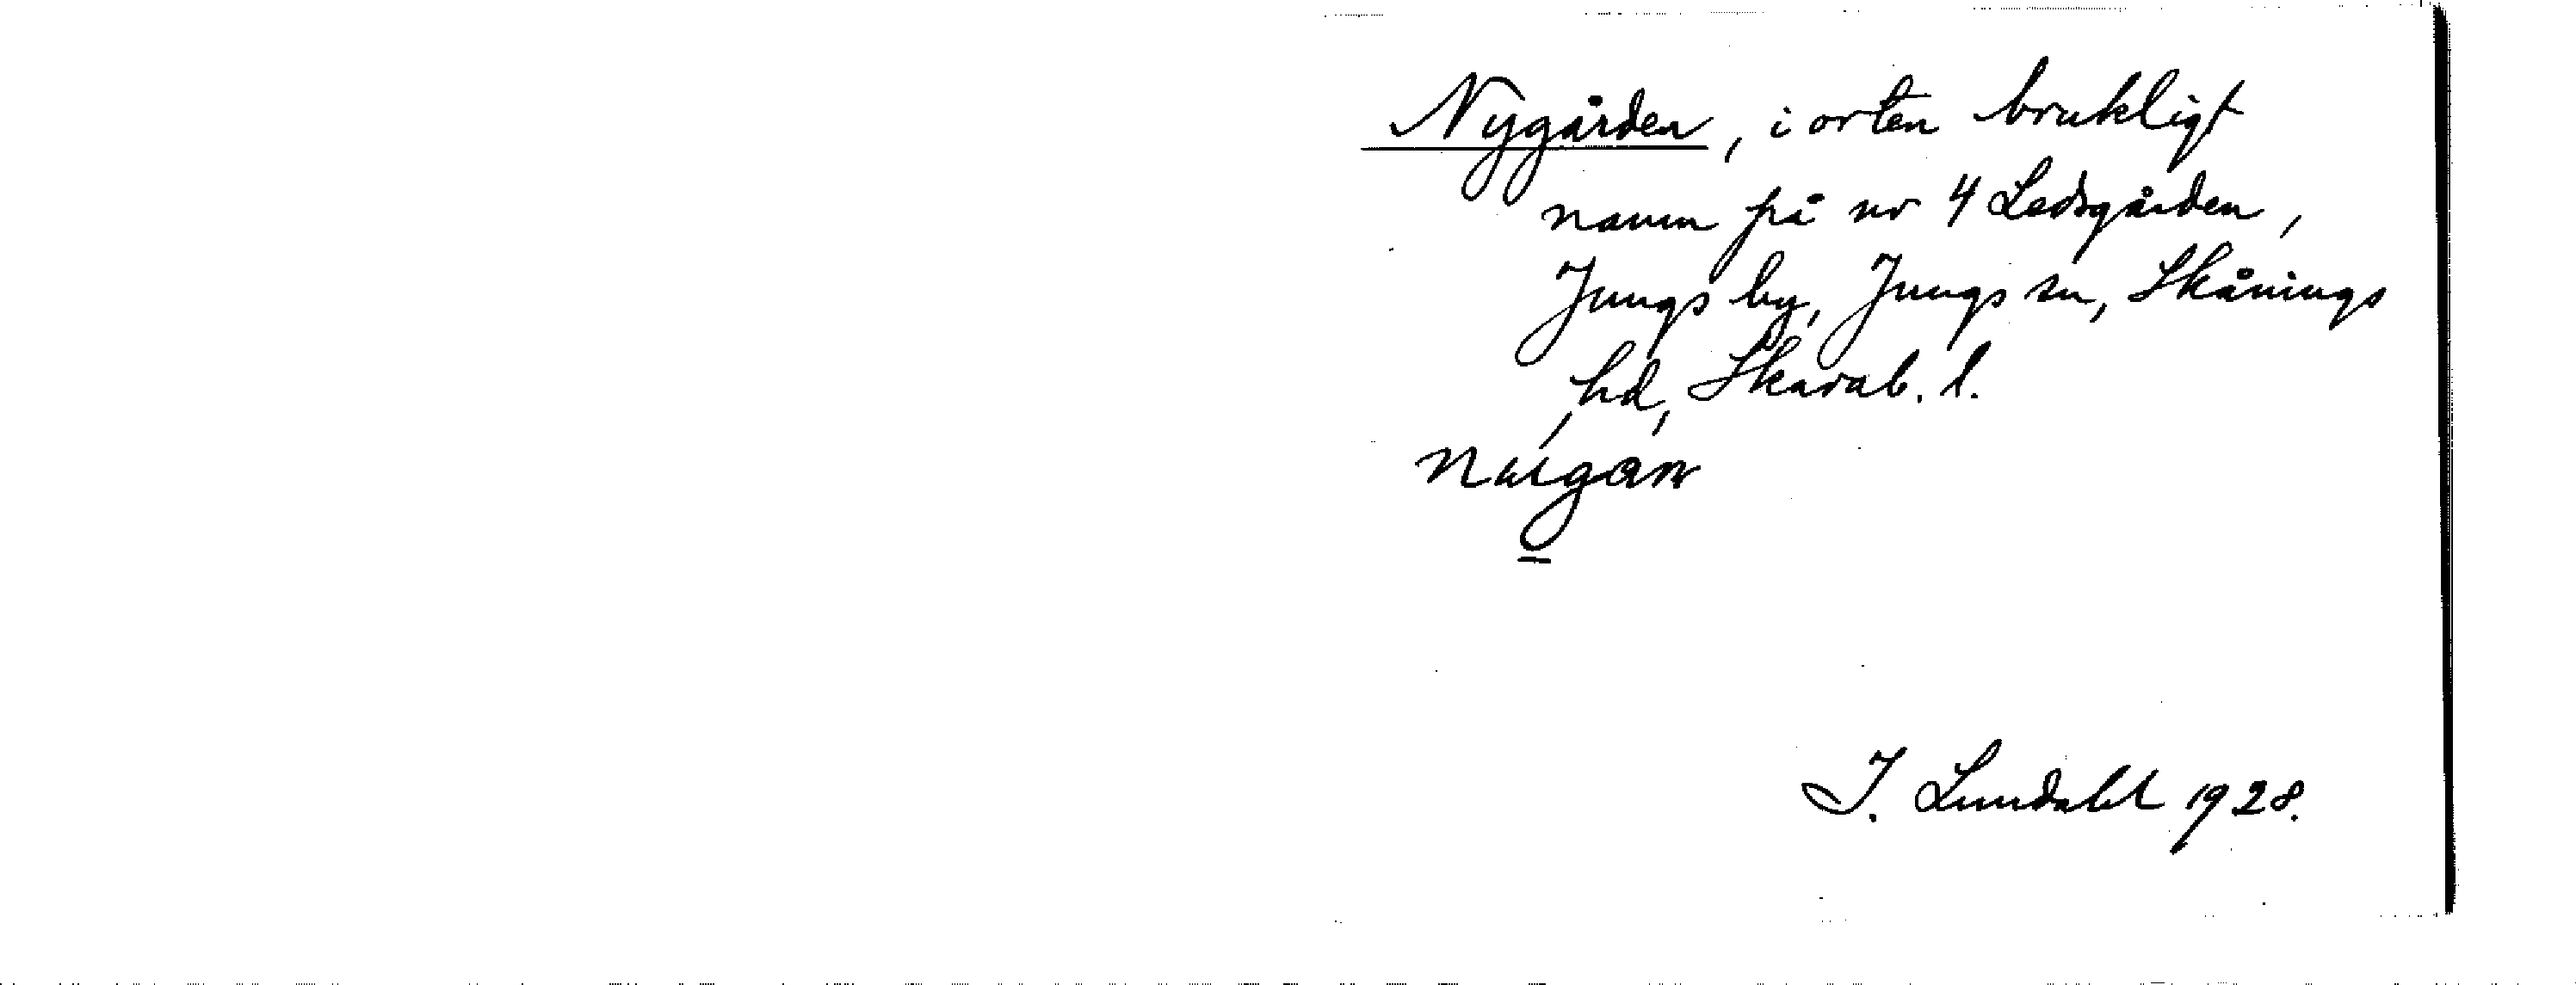 Nygården, i orten brukligt
namn på nr 4 Ledsgården,
Jungs by, Jungs sn, Skånings
hd, Skarab. l.
I. Lundahl 1928.